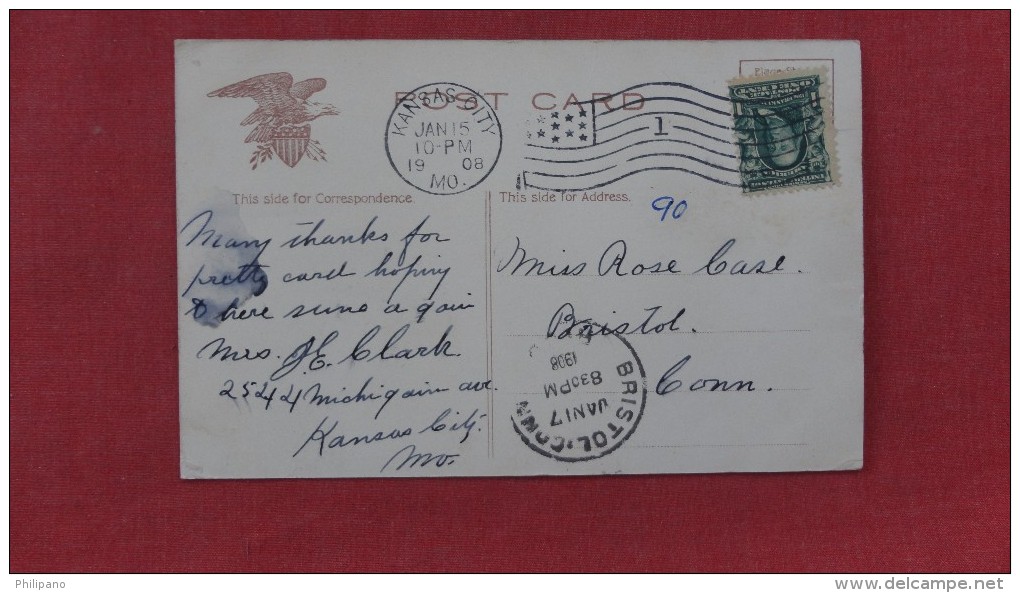 POST CARD
Place Sta
KANSAS CITY
JAN 15
10-PM
19 08
MO.
1
This side for Correspondence.
This side for Address.
90
Many thanks for
pretty card hoping
to here sune a gain
Mrs. J.E. Clark.
2544 Michigain ave.
Kansas City.
Mo.
Miss Rose Case.
Bristol.
Conn.
BRISTOL. CONN
JAN 17
8 30 PM
1908
Philipano
www.delcampe.net